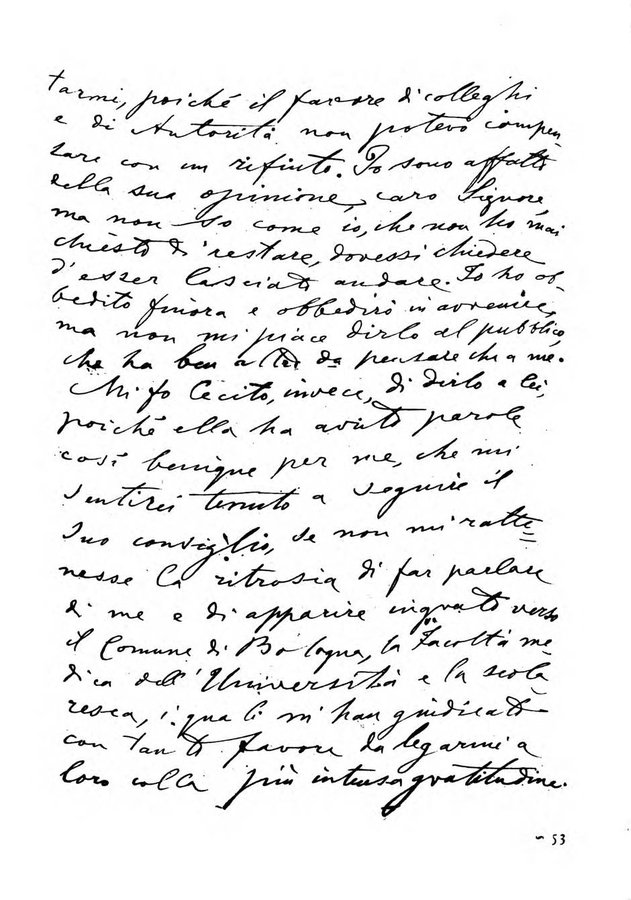 tarmi, poiché il favore di colleghi
e di Autorità non potevo compen-
sare con un rifiuto. Io sono affatto
della sua opinione, caro Signore,
ma non so come io, che non ho mai
chiesto di restare, dovessi chiedere
d'esser lasciato andare. Io ho ob-
bedito finora e obbedirò in avvenire,
ma non mi piace dirlo al pubblico,
che ha ben altro da pensare che a me.
Mi fo lecito, invece, di dirlo a lei,
poiché ella ha avuto parole
così benigne per me, che mi
sentirei tenuto a seguire il
suo consiglio, se non mi ratte=
nesse la ritrosia di far parlare
di me e di apparire ingrato verso
il Comune di Bologna, la Facoltà me-
dica dell'Università e la scola-
resca, i quali mi han giudicato
con tanto favore da legarmi a
loro colla più intensa gratitudine.
53